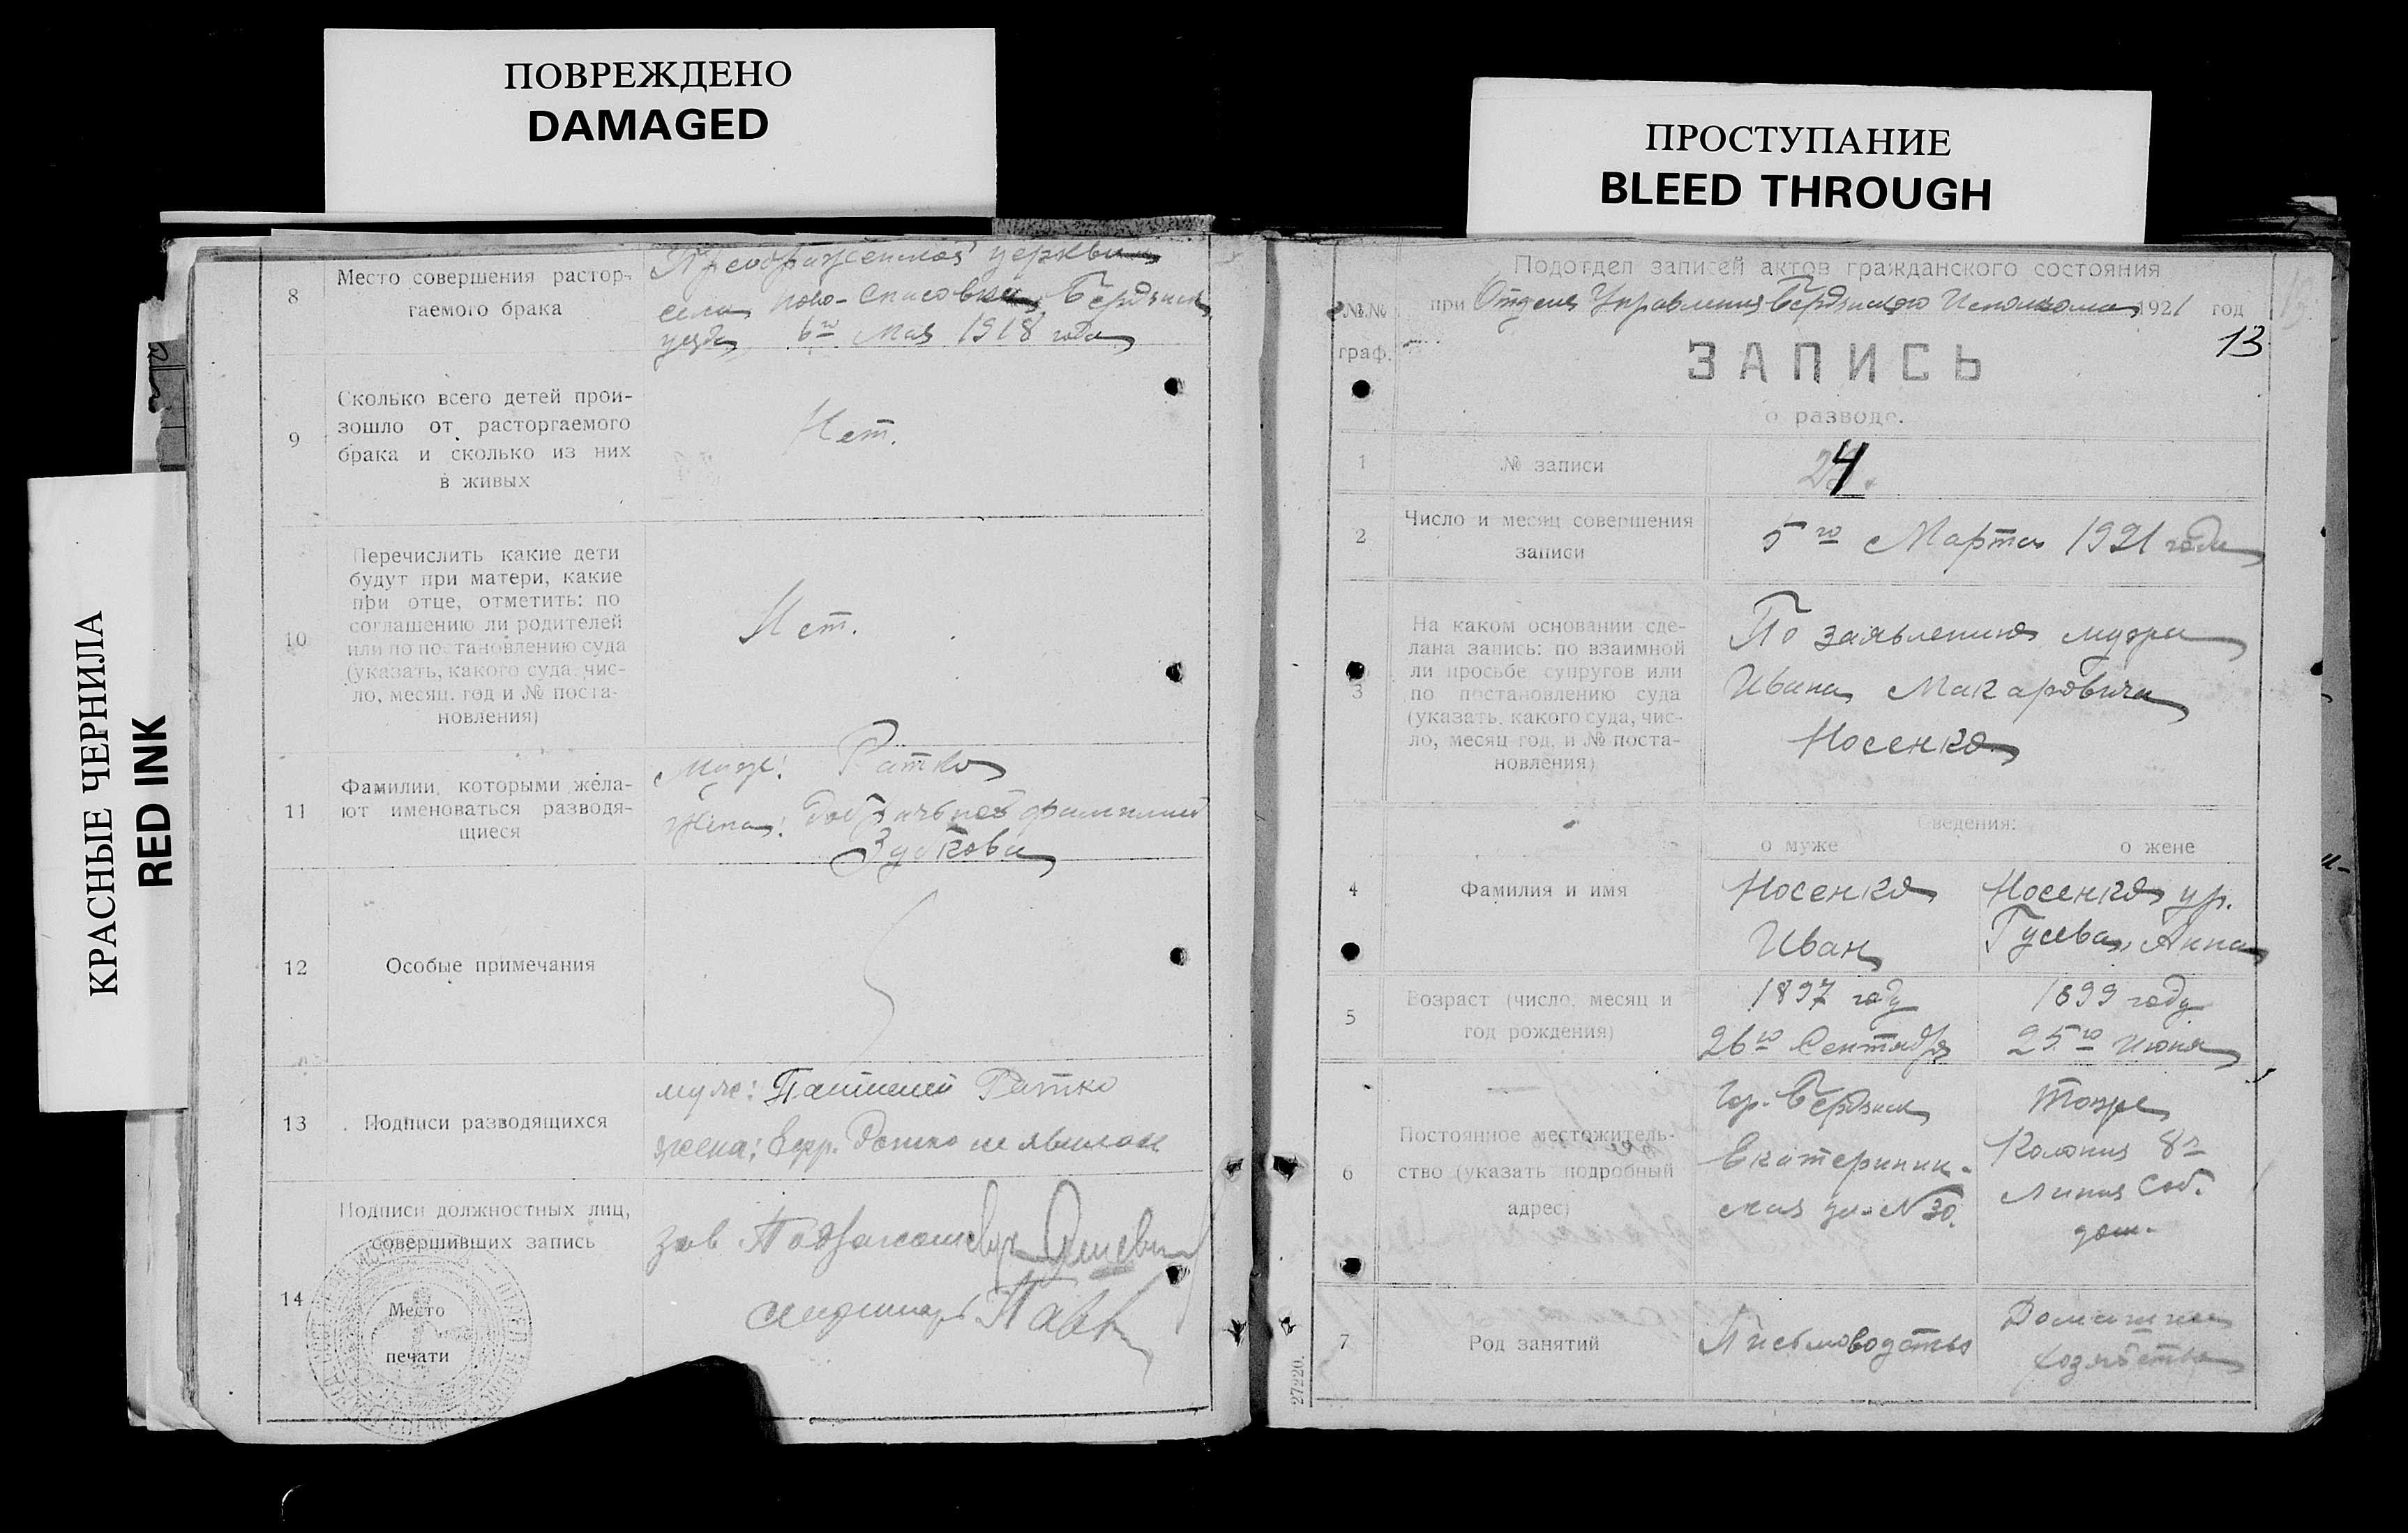 ПОВРЕЖДЕНО
DAMAGED
ПРОСТУПАНИЕ
BLEED THROUGH
КРАСНЫЕ ЧЕРНИЛА
RED INK
8
Место совершения растор-
гаемого брака
Преображенской церкви
села Ново-Спасовка Бердянск.
уезда 6го Мая 1918 года
9
Сколько всего детей прои-
зошло от расторгаемого
брака и сколько из них
в живых
Нет.
10
Перечислить какие дети
будут при матери, какие
при отце, отметить: по
соглашению ли родителей
или по постановлению суда
(указать, какого суда, чис-
ло, месяц, год и № поста-
новления)
Нет.
11
Фамилии, которыми жела-
ют именоваться разводя-
щиеся
Муж: Ратко
Жена: добрачной фамилией
Зубкова
12
Особые примечания
13
Подписи разводящихся
муж: Ратко
жена: Ефр. Ратко не явилась
14
Подписи должностных лиц,
совершивших запись
Место
печати
зав.
Подотдел записей актов гражданского состояния
№№
граф.
при Отделе Управления Бердянского Исполкома 1921 год
13
ЗАПИСЬ
о разводе.
1
№ записи
24.
2
Число и месяц совершения
записи
5го Марта 1921 года
3
На каком основании сде-
лана запись: по взаимной
ли просьбе супругов или
по постановлению суда
(указать, какого суда, чис-
ло, месяц год, и № поста-
новления)
По заявлению мужа
Ивана Макаровича
Носенко
Сведения:
о муже
о жене
4
Фамилия и имя
Носенко
Иван
Носенко ур.
Гусева, Анна
5
Возраст (число, месяц и
год рождения)
1897 году
26го Сентября
1899 году
25го Июня
6
Постоянное местожитель-
ство (указать подробный
адрес)
Гор. Бердянск
Екатеринин-
ская ул. № 30.
Тоже
Колония 8я
Линия Соб.
дом.
7
Род занятий
Письмоводство
Домашнее
хозяйство
27220.